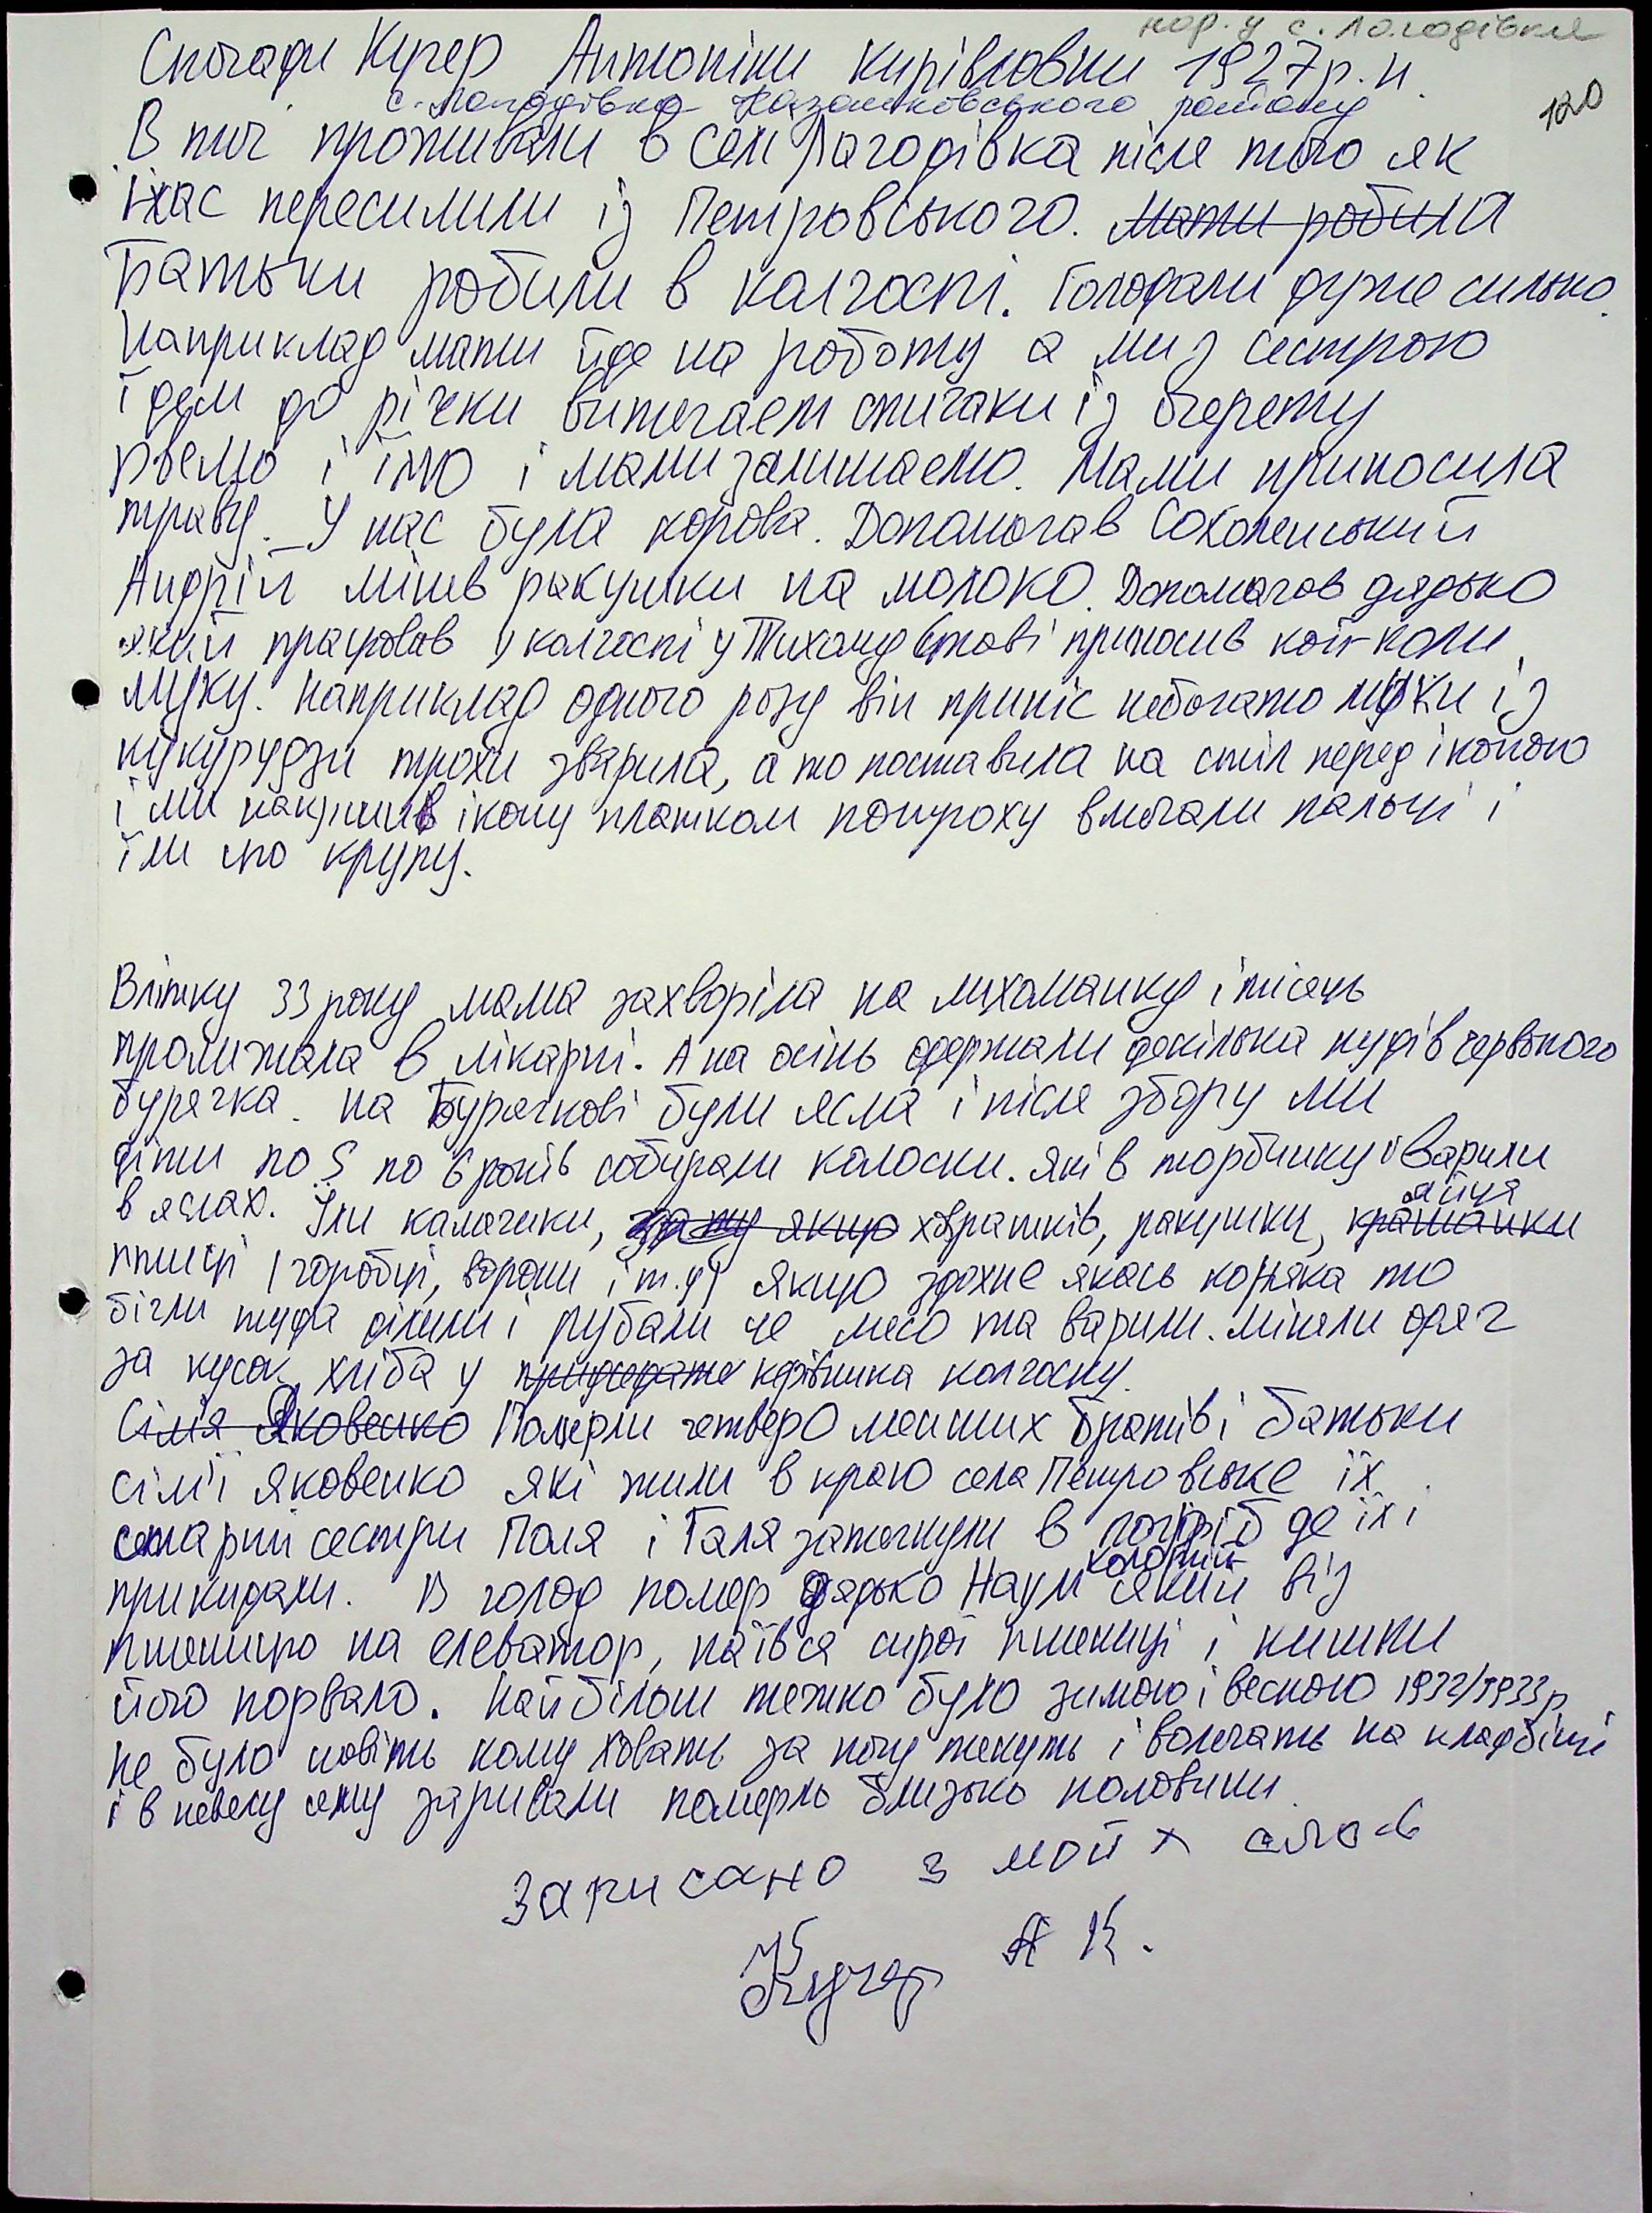 нар. у с. Лагодівка
Спогади Кучер Антоніни Кирівловни 1927 р.н.
120
с. Лагодівка Казанківського району
В    проживали в селі Лагодівка після того як
нас переселили із Петровського. Мати робила
Батьки робили в колгоспі. Голодали дуже сильно.
Наприклад мати йде на роботу а ми з сестрою
ідем до річки витягаєм спичаки із очерету
рвемо і їмо і мами залишаємо. Мами приносила
траву. У нас була корова. Допомагав
Андрій міняв ракушки на молоко. Допомагав дядько
який працював у колгоспі у Тихому Ставі приносив кой-коли
муку. Наприклад одного разу він приніс небогато муки із
кукурудзи трохи зварила, а то поставила на стіл перед іконою
і ми накрили ікону платком потроху вмочали пальці і
їли цю крупу.
Влітку 33 року мама захворіла на лихоманку і місяць
пролижала в лікарні. А на осінь одержали декілька пудів червоного
бурячка. на Бурячкові були ясла і після збору ми
діти по 5 по 6 років собирали колоски. Які в торбинку і варили
в яслах. Їли калачики, якщо ховрашків, ракушки, крашанки
яйця
птиці (горобці, ворони і т.д) якщо здохне якась коняка то
бігли туда ділили і рубали це мясо та варили. міняли одяг
за кусок хліба у придседате керівника колгоспу.
Сімя Яковенко Померли четверо менших братів і батьки
сім'ї Яковенко які жили в краю села Петровське їх
старші сестри Поля і Галя затягнули в погріб де їх і
прикидали. В голод помер дядько Наум який віз
пшеницю на елеватор, наївся сирої пшениці і кишки
його порвало. Найбільш тяжко було зимою і весною 1932/1933р
не було навіть кому ховать за ногу тянуть і волочать на кладбіще
і в невелу яму заривали померло близько половини.
Записано з моїх слов
Кучер А К.